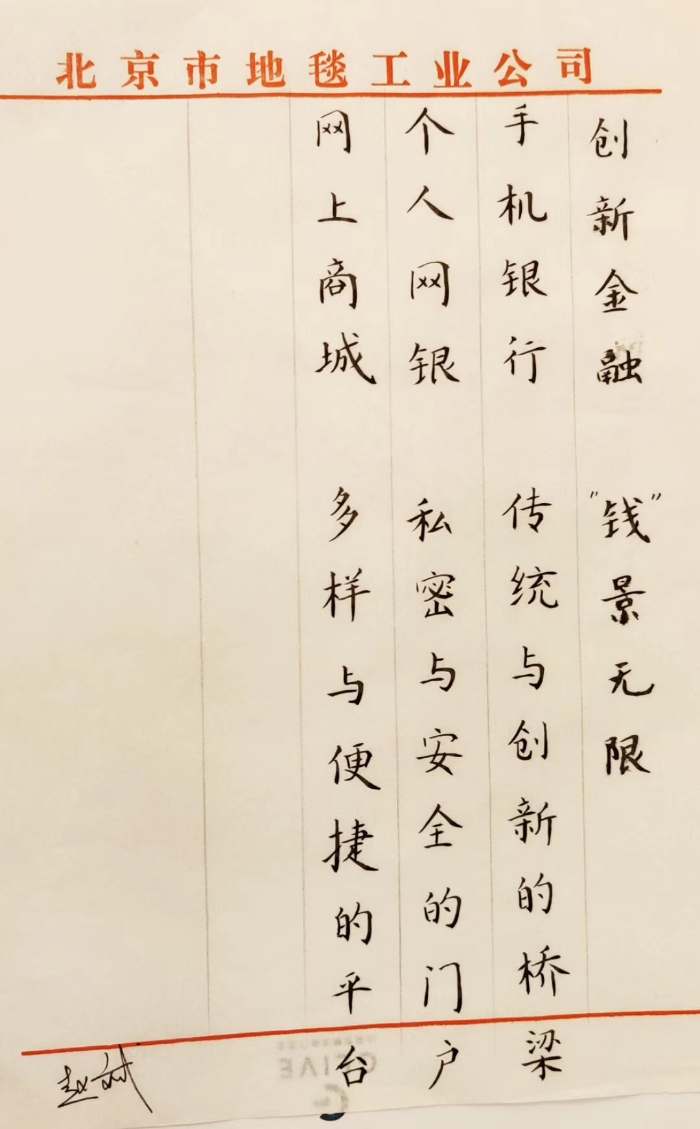 北京市地毯工业公司
创新金融 “钱”景无限
手机银行 传统与创新的桥梁
个人网银 私密与安全的门户
网上商城 多样与便捷的平台